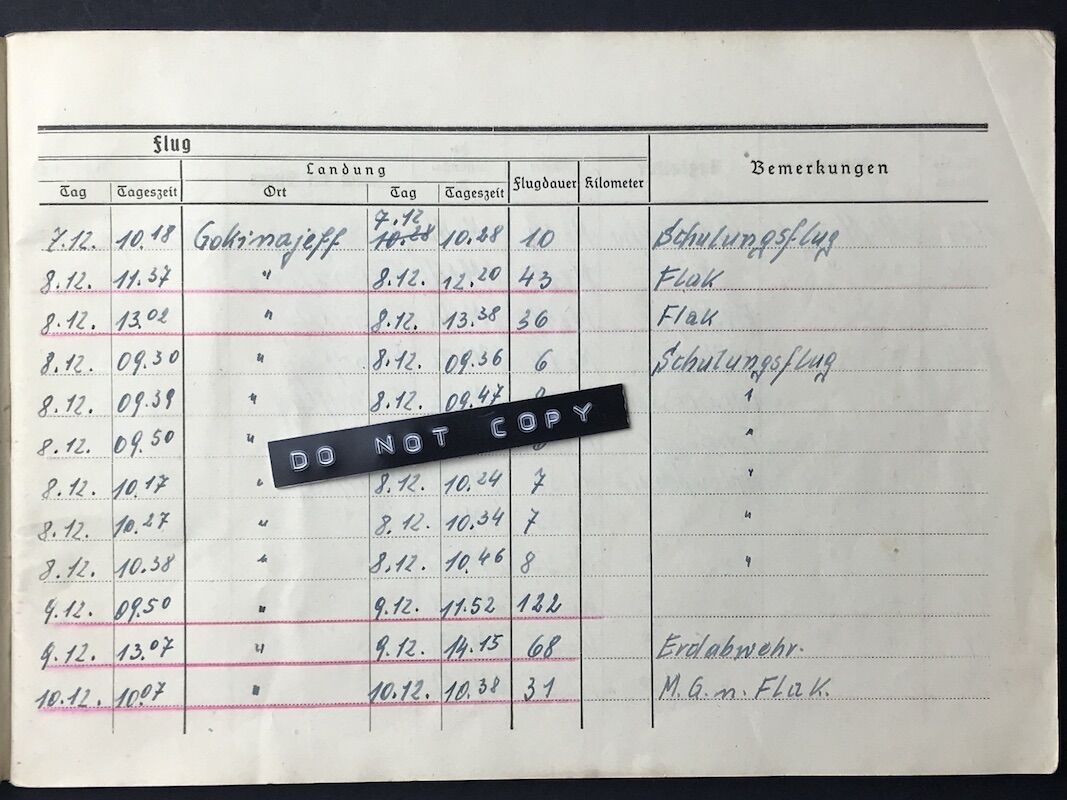 Flug
Landung Flugdauer Kilometer Bemerkungen
Tag Tageszeit Ort Tag Tageszeit
7.12
7.12. 10.18 Gokinajeff 10.28 10.28 10 Schulungsflug
8.12. 11.37 " 8.12. 12.20 43 Flak
8.12. 13.02 " 8.12. 13.38 36 Flak
8.12. 09.30 " 8.12. 09.36 6 Schulungsflug
8.12. 09.39 " 8.12. 09.47 "
8.12. 09.50 " "
DO NOT COPY
8.12. 10.17 " 8.12. 10.24 7 "
8.12. 10.27 " 8.12. 10.34 7 "
8.12. 10.38 " 8.12. 10.46 8 "
9.12. 09.50 " 9.12. 11.52 122
9.12. 13.07 " 9.12. 14.15 68 Erdabwehr.
10.12. 10.07 " 10.12. 10.38 31 M.G. n. Flak.